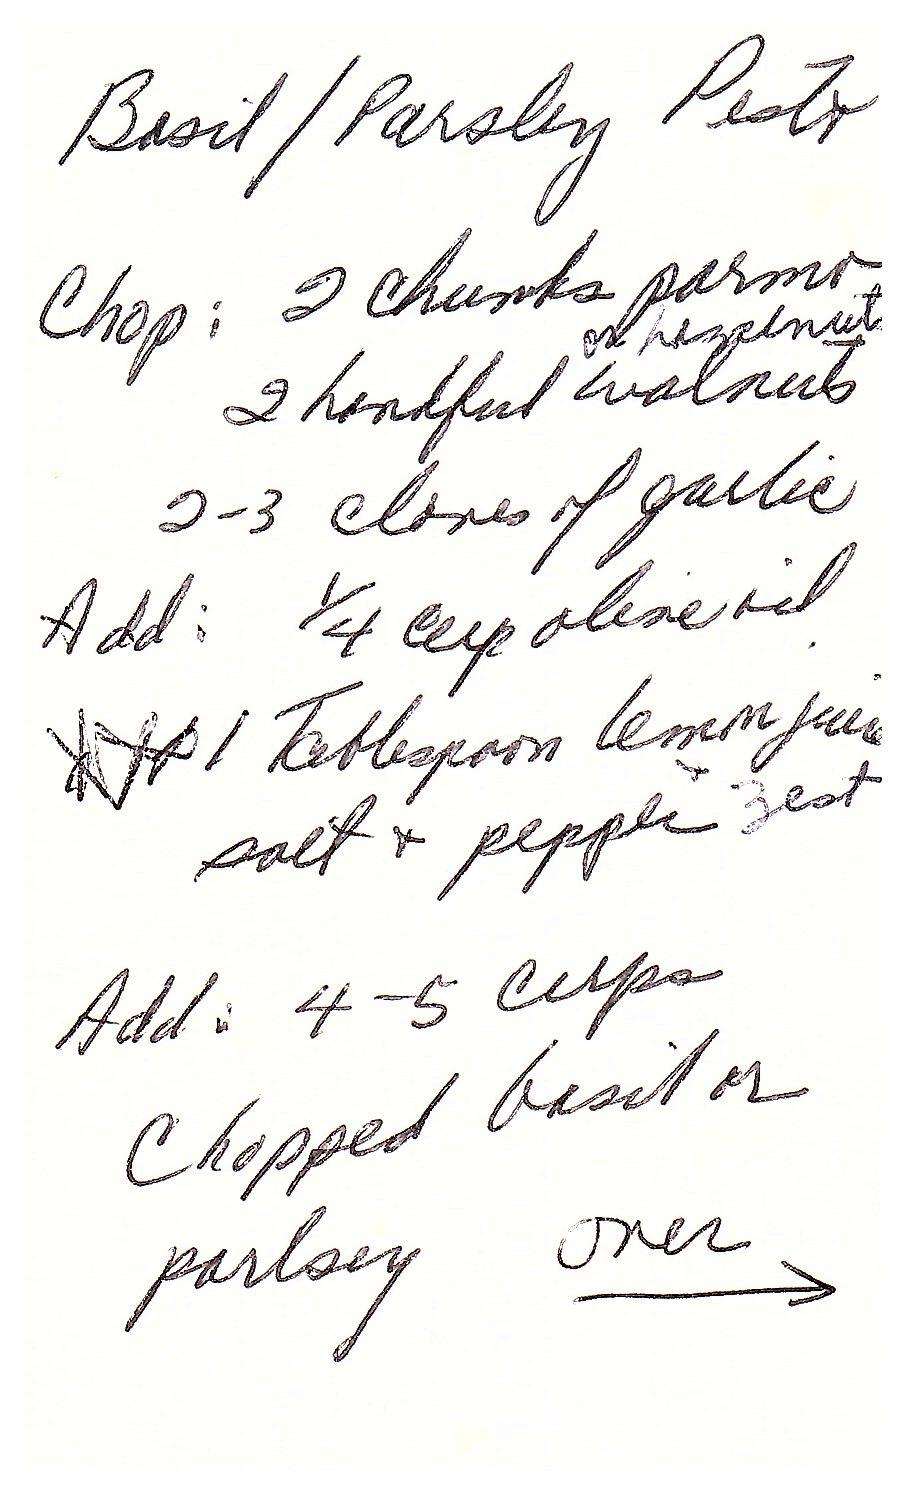 Basil / Parsley Pesto
Chop: 2 chunks parmo
or hazelnuts
2 handful walnuts
2-3 cloves of garlic
Add: 1/4 cup olive oil
1 Tablespoon lemon juic
+ zest
salt + pepper
Add: 4-5 cups
Chopped basil or
parlsey over →